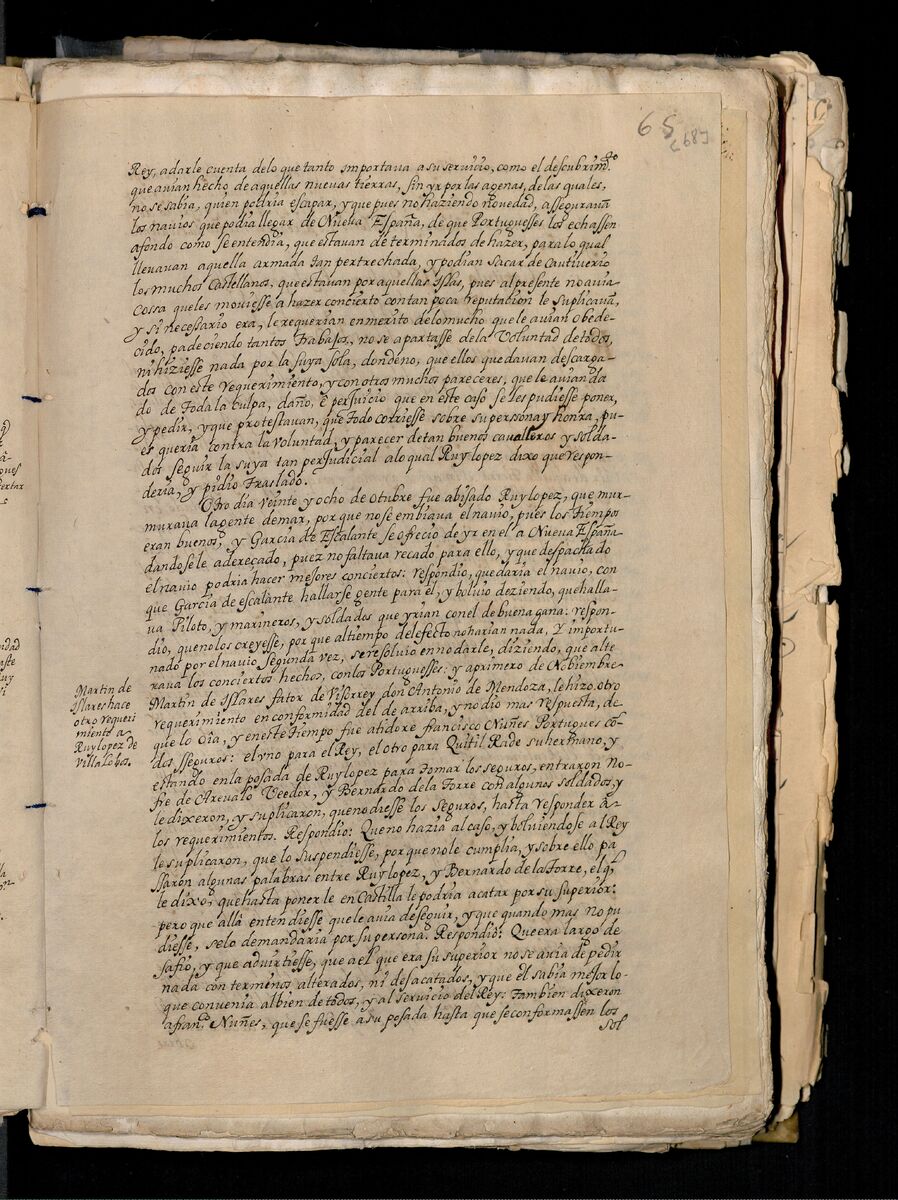 65
689
Rey, a darle cuenta de lo que tanto importava a su servicio, como el descubrim.to
que avian hecho de aquellas nuevas tierras, sin yr por las agenas, de las quales,
no se sabia, quien podria escapar, y que pues no haziendo novedad, assegurava
los navios que podia llegar de Nueva España, de que Portuguesses los echassen
afondo como se entendia, que estavan determinados de hazer, para lo qual
llevavan aquella armada tan pertrechada, y podian sacar de Cautiverio
los muchos Castellanos, que estavan por aquellas Islas, pues al presente no avia
cossa que les moviesse a hazer concierto con tan poca reputacion le suplicavã,
y si necessario era, le requerian en merito de lo mucho que le avian obede-
cido, padeciendo tantos trabajos, no se apartasse de la Voluntad de todos,
ni hiziesse nada por la suya sola, donde no, que ellos quedavan descarga-
dos con este requerimiento, y con otros muchos pareceres, que le avian da
do de toda la culpa, daño, è perjuicio que en este caso se les pudiesse poner,
y pedir, y que protestavan, que todo corriesse sobre su perssona y honra, pu-
es queria contra la voluntad, y parecer de tan buenos cavalleros y solda-
dos seguir la suya tan perjudicial a lo qual Ruylopez dixo que respon-
deria, y pidio traslado.
Otro dia veinte y ocho de otubre fue abisado Ruylopez, que mur-
murava la gente de mar, por que no se embiava el navio, pues los tiempos
eran buenos, y Garcia de Escalante se ofrecio de yr en el a Nueva España
dandosele adereçado, puez no faltava recado para ello, y que despachado
el navio podria hacer mejores conciertos: respondio, que daria el navio, con
que Garcia de escalante hallarse gente para el, y bolvio deziendo, que halla-
va Piloto, y marineros, y soldados que yrian con el de buena gana: respon-
dio, que no los creyesse, por que al tiempo del efecto no harian nada, Y importu-
nado por el navio segunda vez, se resolvio en no darle, diziendo, que alte
rava los conciertos hechos, con los Portuguesses: y a primero de Nobiembre
Martin de Islares fator de Visorrey don Antonio de Mendoza, le hizo otro
requerimiento en conformidad del de arriba, y no dio mas respuesta, de
que lo oîa, y en este tiempo fue a tidore francisco Nuñes Portugues cõ
dos sseguros: el vno para el Rey, el otro para Quitil Rade su hermano, y
estando en la posada de Ruylopez para tomar los seguros, entraron No-
fre de Arevalo Veedor, y Bernardo de la Torre con algunos soldados, y
le dixeron, y suplicaron, que no diesse los seguros, hasta responder â-
los requerimientos. Respondio: Que no hazia al caso, y bolviendose al Rey
le suplicaron, que lo suspendiesse, por que no le cumplia, y sobre ello pa
ssaron algunas palabras entre Ruylopez, y Bernardo de la Torre, el q̃
le dixo, que hasta ponerle en Castilla le podria acatar por su superior:
pero que allà entendiesse que le avia de seguir, y que quando mas no pu
diesse, se lo demandaria por su persona. Respondio: Que era largo de
safio, y que advirtiesse, que a el que era su superior no se avia de pedir
nada con terminos alterados, ni desacatados, y que el sabia mejor lo-
que convenia al bien de todos, y al servicio del Rey: Tambien dixeron
a fran.co Nuñes, que se fuesse a su posada hasta que se conformassen los
sol
Martin de
Islares hace
otro requeri
miento a
Ruylopez de
Villalobos.